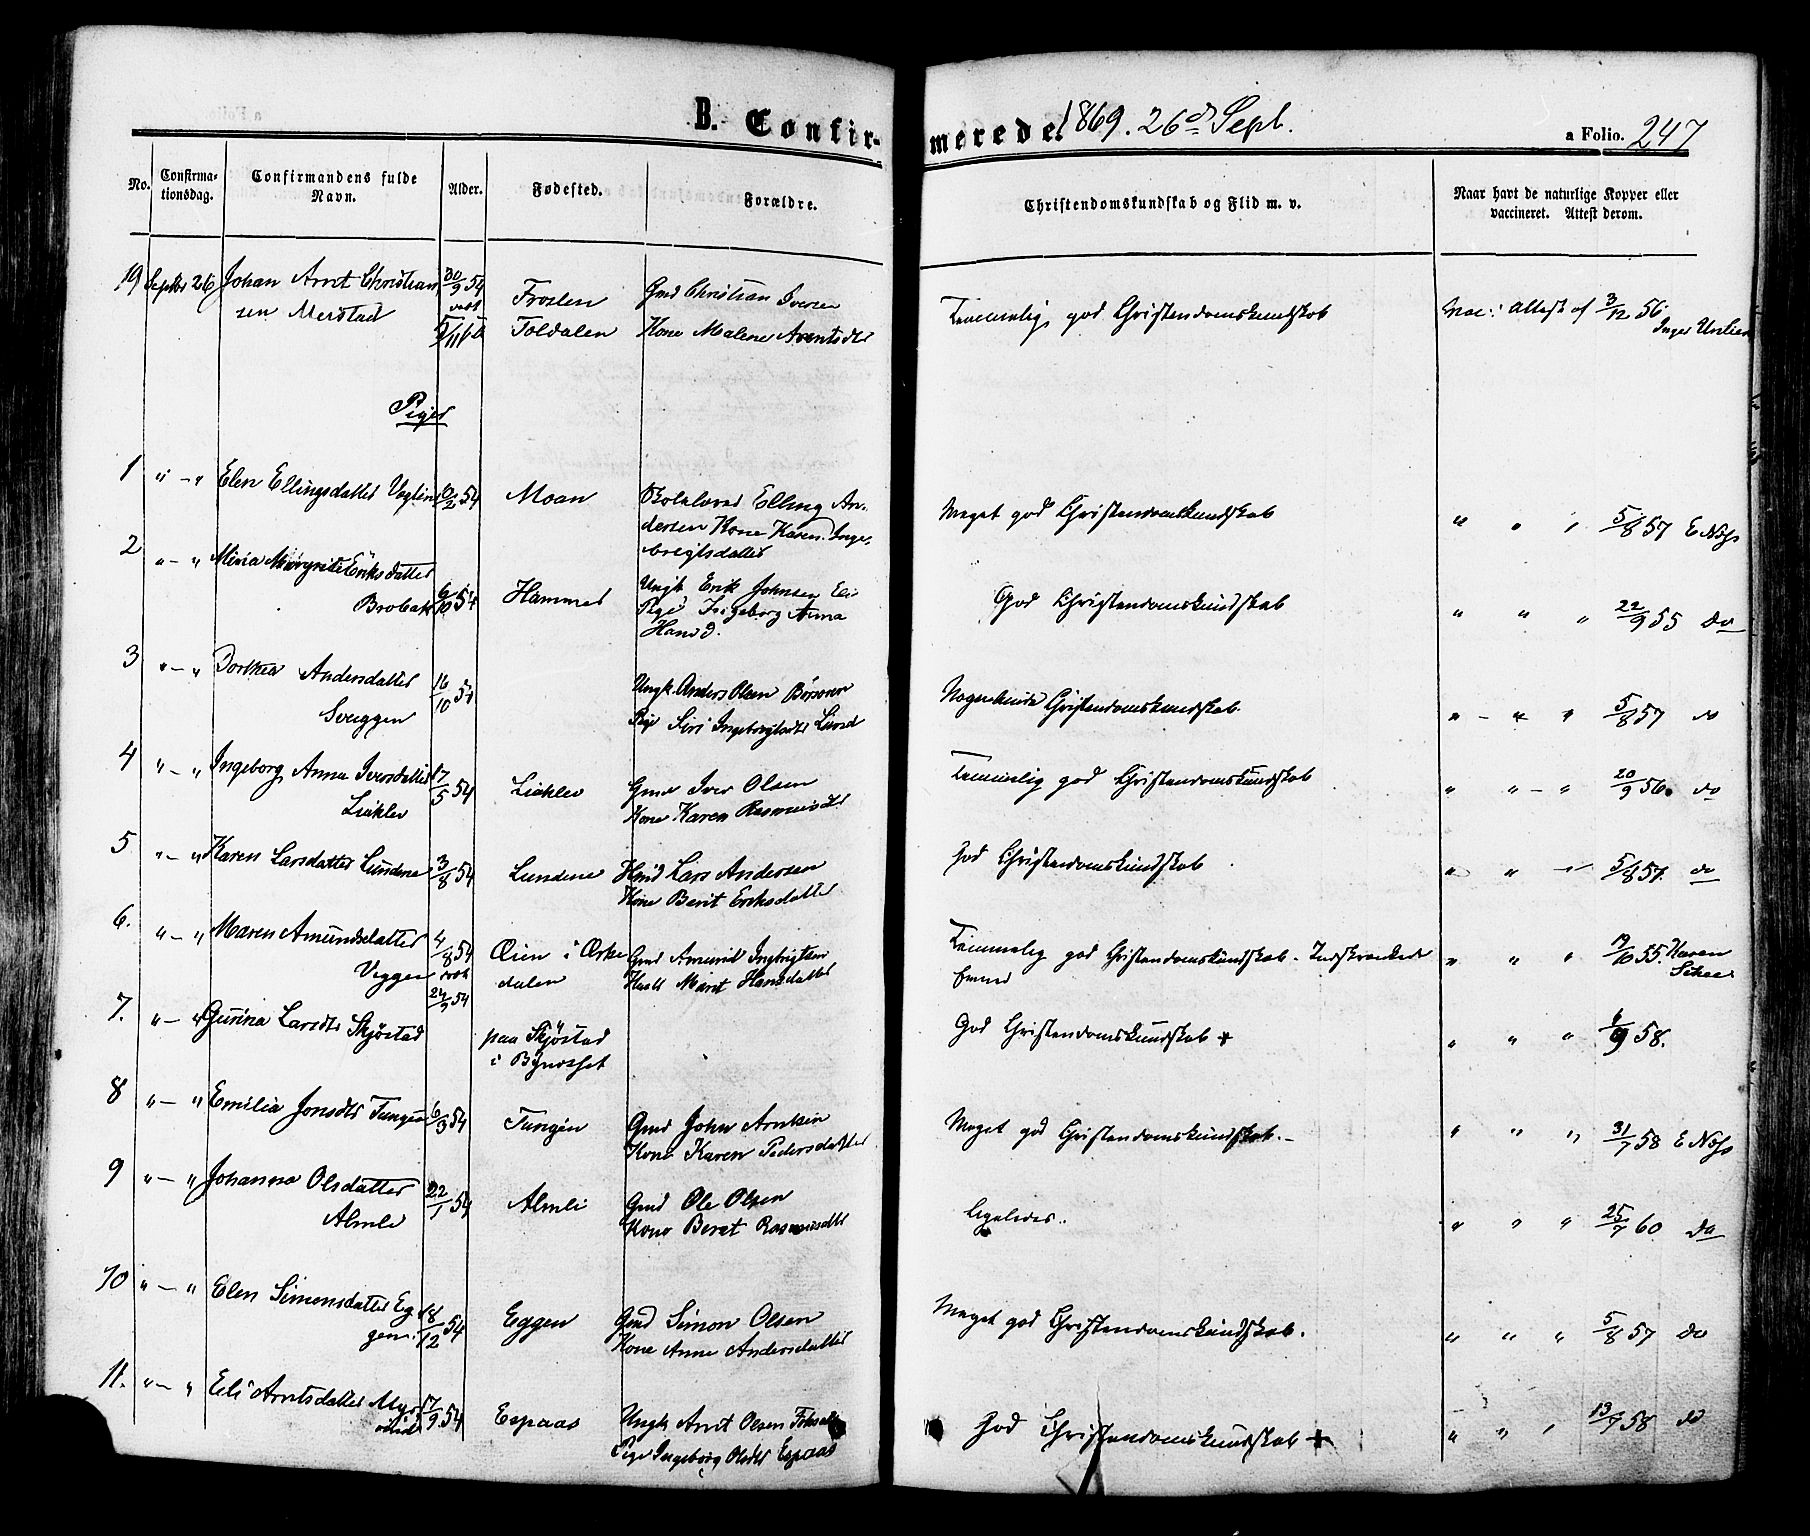 B. Confir-
merede. 1869. 26de Sept.
a Folio. 247
No.
Confirma-
tionsdag.
Confirmandens fulde
Navn.
Alder.
Fødested.
Forældre.
Christendomskundskab og Flid m. v.
Naar havt de naturlige Kopper eller
vaccineret. Attest derom.
19 Septbr 26 Johan Arnt Christian 30/9 54 Gmd Christian Iversen
sen Merstad Froslen Temmelig god Christendomskundskab Vac: Attest af 3/12 56
Foldalen Kone Malene Arentsdtr Inger
Piger
1 " - " Elen Ellingsdatter 54 Moan Skolelærer Elling An-
dersen Kone Karen Inge-
brigtsdatter
Meget god Christendomskundskab " " " 5/8 57 E
2 " - " Mina Margrete Eriksdatter
Brobak 6/10 54 Hammer Ungk Erik Johnsen
Pige Ingeborg Anna
Hansd.
God Christendomskundskab " " " 22/9 55 do
3 " - " Dorthea Andersdatter 16/10 54 Ungk. Anders Olsen
Sveggen Pige Siri Lund
Christendomskundskab. " - " " 5/8 57 do
4 " - " Ingeborg Anna Iversdatter 17/5 54 Liaklev Gmd Iver Olsen
Liaklev Kone Karen Rasmusdtr
Temmelig god Christendomskundskab " " - " 20/9 56. do
5 " - " Karen Larsdatter Lundene 3/8 54 Lundene Lars Andersen
Kone Berit Eriksdatter
God Christendomskundskab " " " 5/8 57. do
6. " - " Maren Amundsdatter 4/8 54 Øien i Orke
Viggen dalen Gmd Amund Ingbrigtsen
Marit Hansdatter
Temmelig god Christendomskundskab - Indskrænkede
Evner " " " 55. Karen
24/9 54
7. " - " Gurina Larsdtr Skjøstad paa Skjøstad
i Bynæsset
God Christendomskundskab + " " " 58.
8 " - " Emilia Jonsdtr Tungen 6/3 54 Tungen Gmd John Arntsen
Kone Karen Pedersdatter
Meget god Christendomskundskab. - " " " 31/7 58 E
9 " - " Johanna Olsdatter 22/1 54 Almli Gmd Ole Olsen
Almli Kone Beret Rasmusdtr
Ligeledes. " " " 25/7 60 do
10 " - " Elen Simonsdatter Eg
gen. 18/12 54 Eggen Gmd Simon Olsen
Kone Anne Andersdatter
Meget god Christendomskundskab. " " " 5/8 57 do
11. " - " Eli Arntsdatter 17/9 54 Espaas Ungk Arnt Olsen
Pige Ingeborg Olsdtr Espaas
God Christendomskundskab + " " " 13/7 58 do